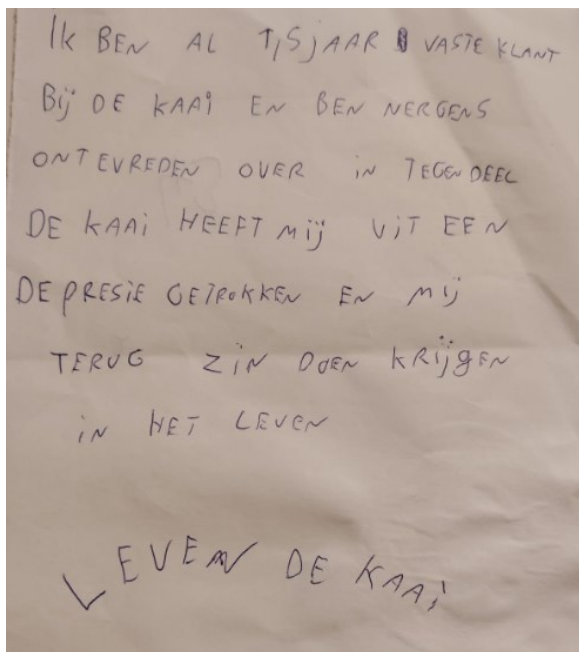 IK BEN AL 1,5 JAAR VASTE KLANT
BIJ DE KAAI EN BEN NERGENS
ONTEVREDEN OVER IN TEGENDEEL
DE KAAI HEEFT MIJ UIT EEN
DEPRESIE GETROKKEN EN MIJ
TERUG ZIN DOEN KRIJGEN
IN HET LEVEN
LEVEN DE KAAI